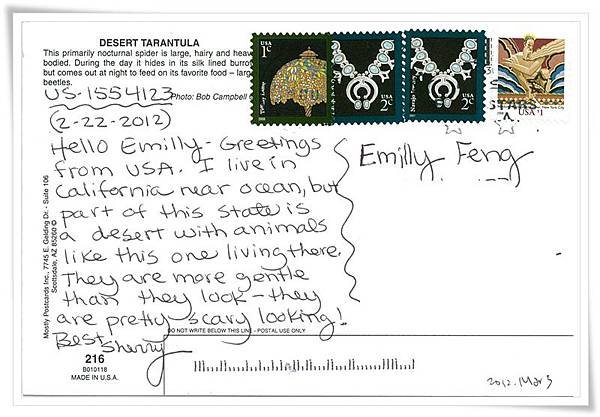 DESERT TARANTULA
This primarily nocturnal spider is large, hairy and heav
bodied. During the day it hides in its silk lined burro
but comes out at night to feed on its favorite food – larg
beetles.
US-1554123
Photo: Bob Campbell ©
(2-22-2012)
Hello Emilly - Greetings
from USA. I live in
California near ocean, but
part of this state is
a desert with animals
like this one living there.
They are more gentle
than they look - they
are pretty scary looking!
Best, Sherry
Emilly Feng
USA
1¢
USA
2¢
USA
2¢
Navajo
STARS
USA $1
Mostly Postcards Inc., 7745 E. Gelding Dr. - Suite 106
Scottsdale, AZ 85260 ©
DO NOT WRITE BELOW THIS LINE - POSTAL USE ONLY
216
B010118
MADE IN U.S.A.
2012. Mar 3